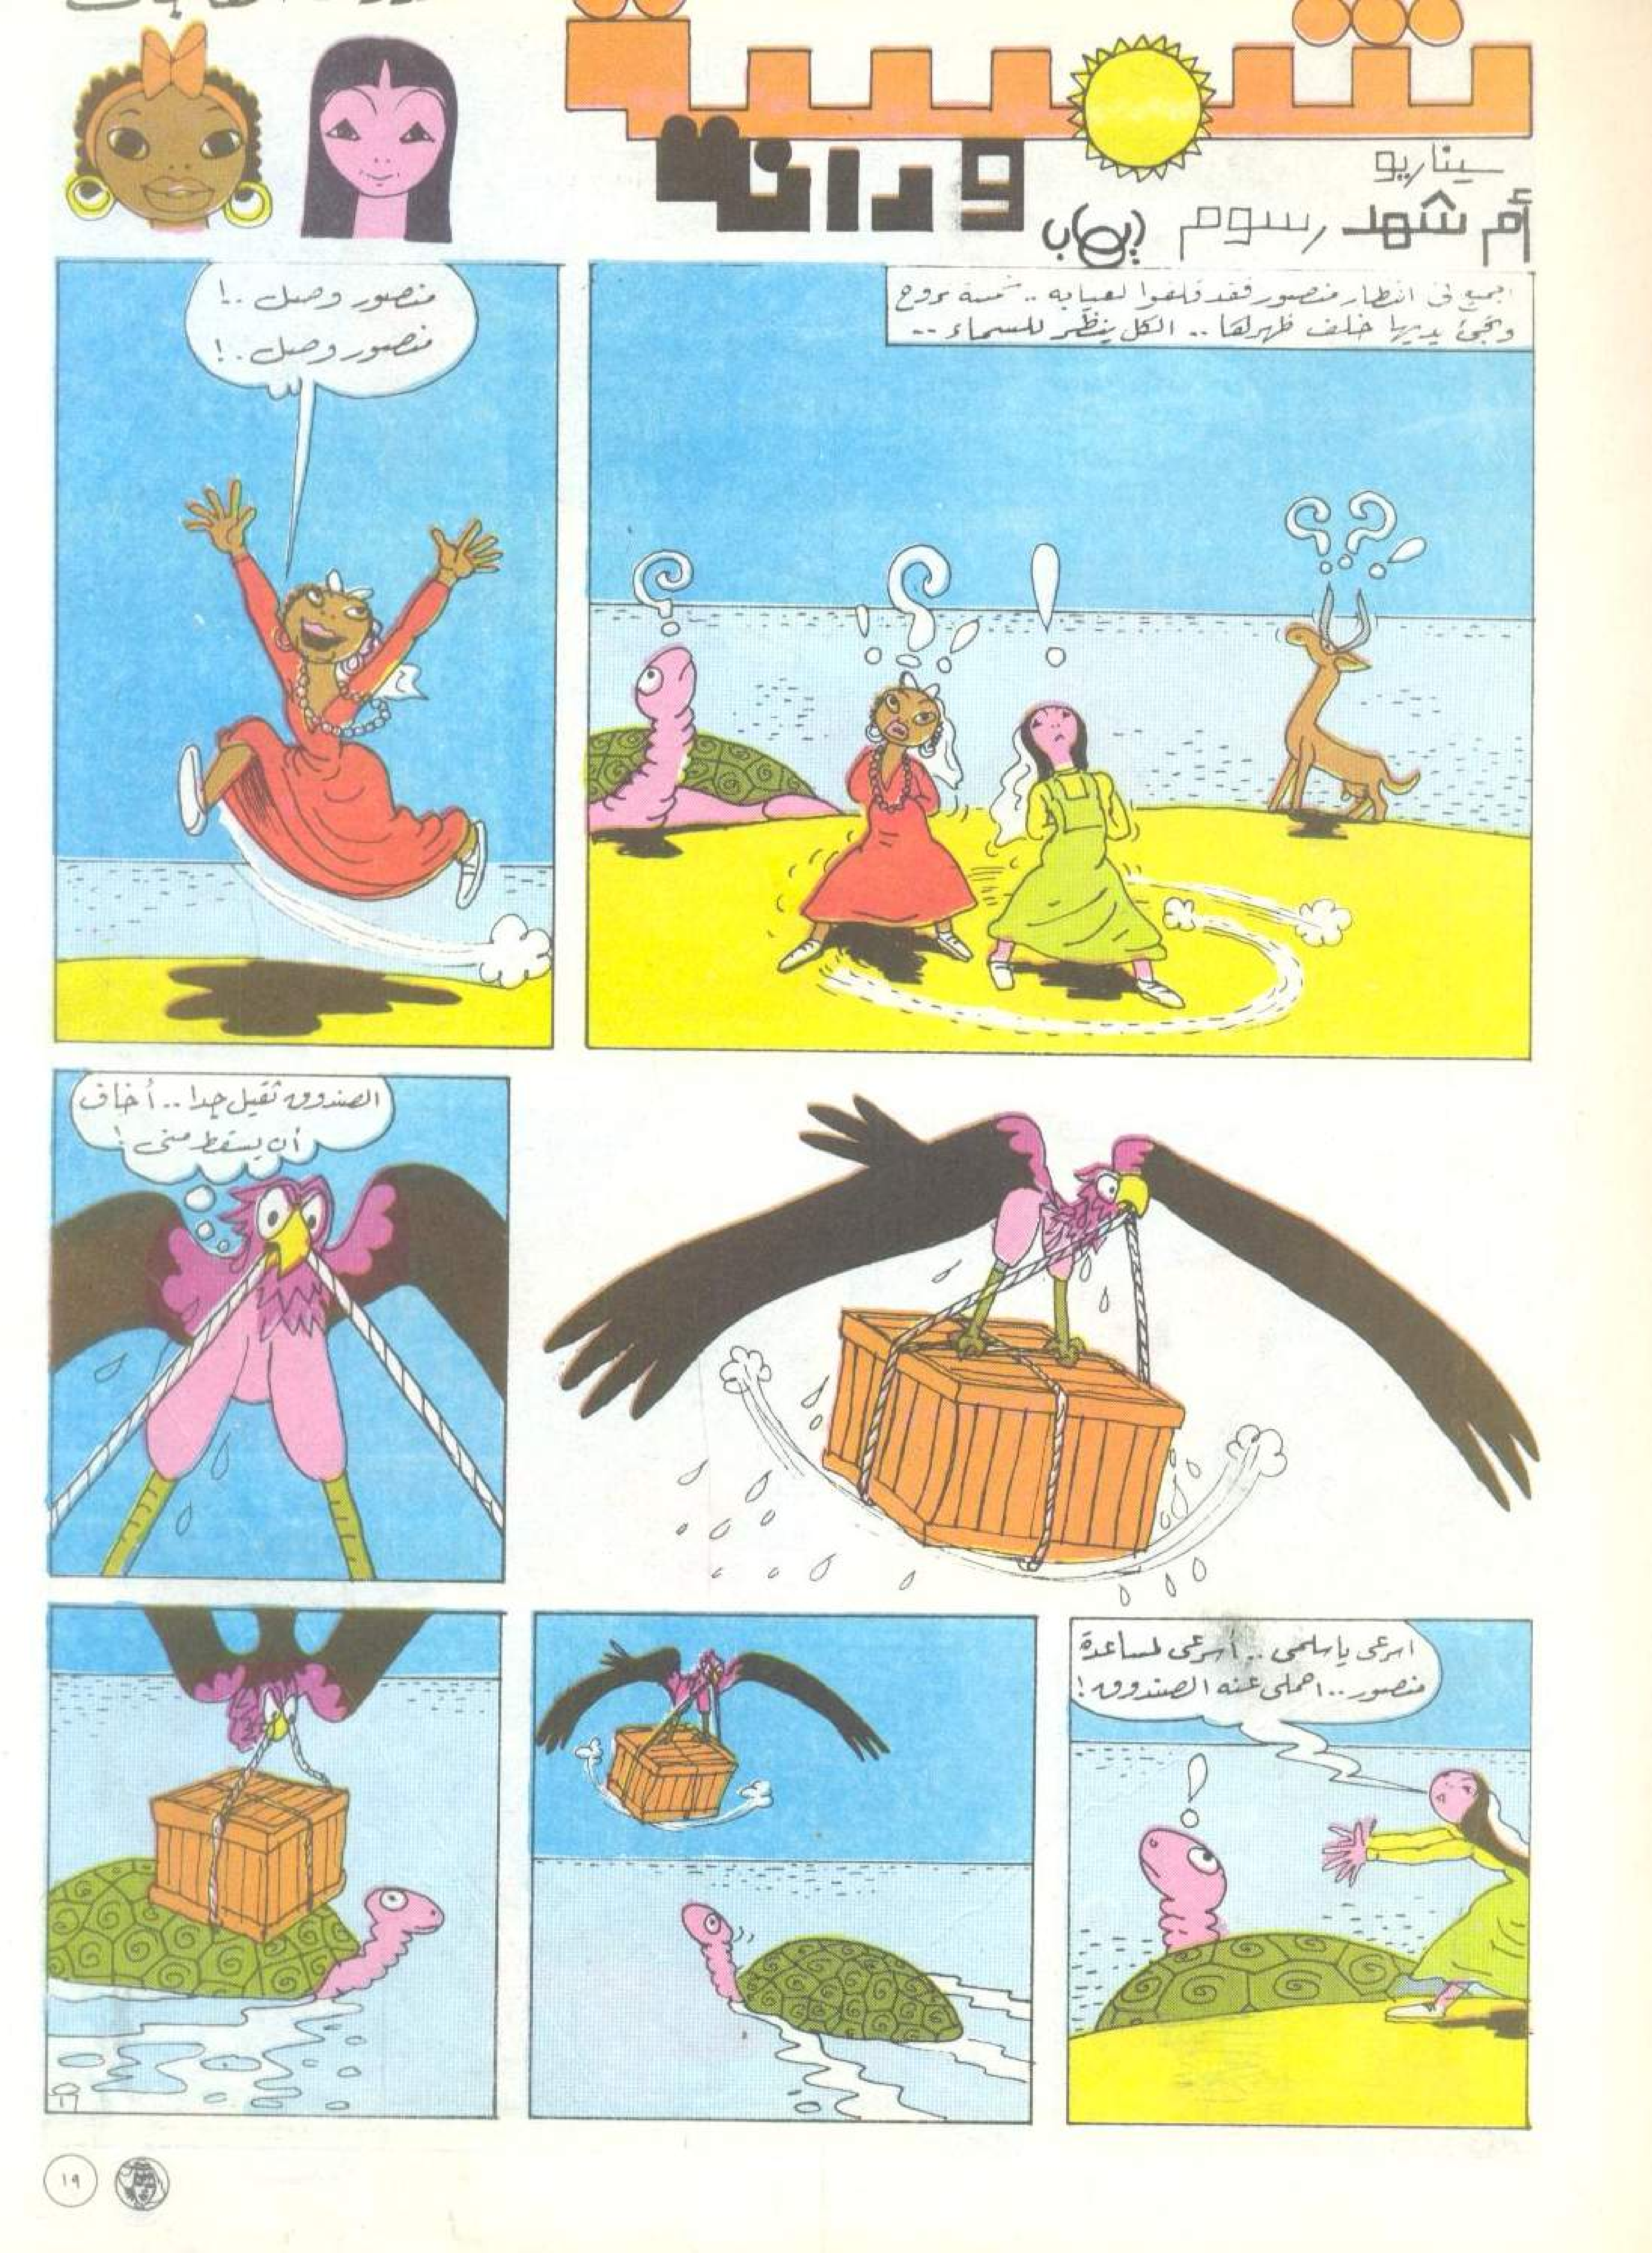 شمسة
ودانة
سيناريو
أم شهد رسوم إيهاب
الجميع فى انتظار منصور فقد قلقوا لغيابه .. شمسة تروح
وتجئ يديها خلف ظهرها .. الكل ينظر للسماء ..
منصور وصل ..!
منصور وصل ..!
الصندوق ثقيل جدا .. أخاف
أن يسقط منى !
اسرعى يا سلمى .. أسرعى لمساعدة
منصور .. احملى عنه الصندوق !
١٩